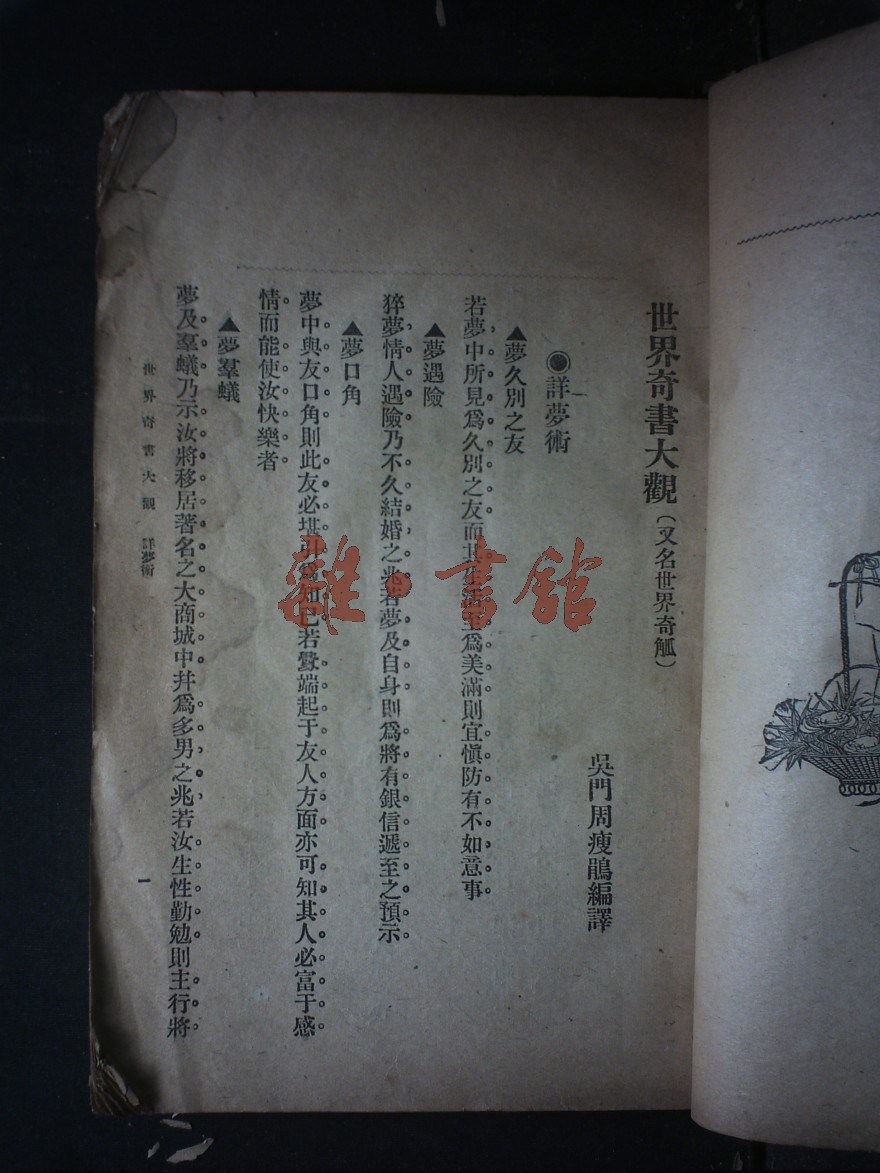 世界奇書大觀（又名世界奇觚）
吳門周瘦鵑編譯
◉詳夢術
▲夢久別之友
若夢中所見爲久別之友而其生活至爲美滿則宜愼防有不如意事
▲夢遇險
猝夢情人遇險乃不久結婚之兆若夢及自身則爲將有銀信遞至之預示
▲夢口角
夢中與友口角則此友必堪引爲知已若釁端起于友人方面亦可知其人必富于感
情而能使汝快樂者
▲夢羣蟻
夢及羣蟻乃示汝將移居著名之大商城中幷爲多男之兆若汝生性勤勉則主行將
世界奇書大觀 詳夢術
一
雜·書館